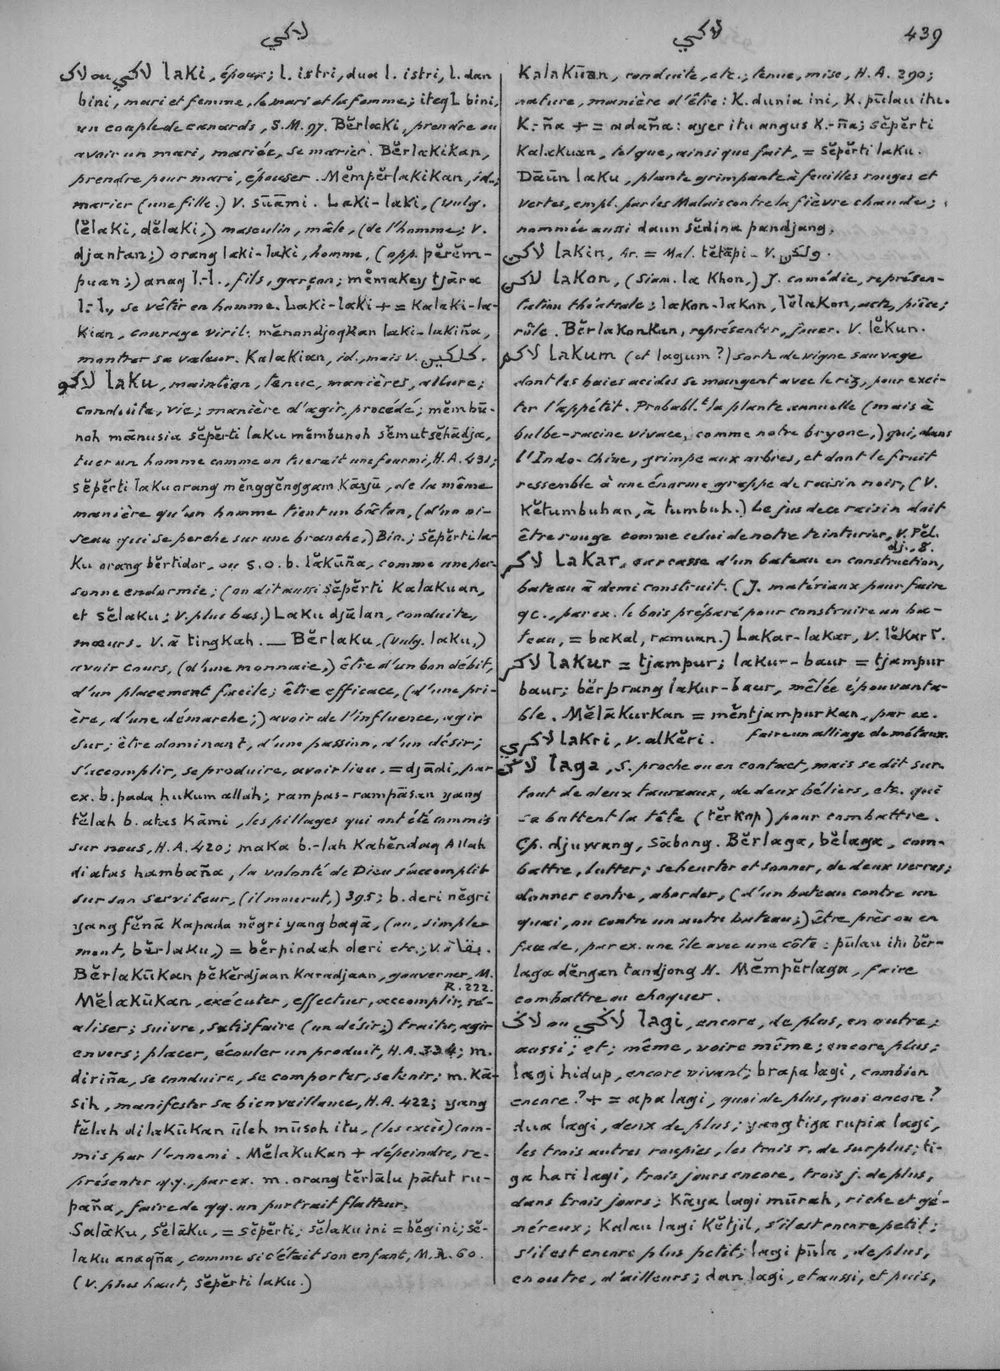 لاكي
لاكي
439
لاك ou لاكي laki, époux; l. istri, dua l. istri, l. dan
bini, mari et femme, le mari et la femme; iteq l. bini,
un couple de canards, S.M. 97. Bĕrlaki, prendre ou
avoir un mari, mariée, se marier. Bĕrlakikan,
prendre pour mari, épouser. Mĕmpĕrlakikan, id.,
marier (une fille.) V. sūāmi. Laki-laki, (vulg.
lĕlaki, dĕlaki,) masculin, mâle, (de l'homme; V.
djantan;) orang laki-laki, homme, (opp. pĕrĕm-
puan;) anaq l.-l., fils, garçon; mĕmakey tjāra
l.-l., se vêtir en homme. Laki-laki + = Kalaki-la-
kian, courage viril: mĕnondjoqkan laki-lakiña,
montrer sa valeur. Kalakian, id., mais V. كلكين.
لاكو laku, maintien, tenue, manières, allure;
conduite, vie; manière d'agir, procédé; mĕmbū-
noh mānusia sĕpĕrti laku mĕmbunoh sĕmut sĕhādja,
tuer un homme comme on tuerait une fourmi, H.A. 431;
sĕpĕrti laku orang mĕnggĕnggam Kāyū, de la même
manière qu'un homme tient un bâton, (d'un oi-
seau qui se perche sur une branche,) Bin.; sĕpĕrti la-
ku orang bĕrtidor, ou s.o.b. lăkūña, comme une per-
sonne endormie; (on dit aussi sĕpĕrti Kalakuan,
et sĕlaku; V. plus bas.) Laku djālan, conduite,
mœurs. V. ā tingkah. — Bĕrlaku, (vulg. laku,)
avoir cours, (d'une monnaie,) être d'un bon débit,
d'un placement facile; être efficace, (d'une pri-
ère, d'une démarche;) avoir de l'influence, agir
sur; être dominant, d'une passion, d'un désir;
s'accomplir, se produire, avoir lieu, = djādi, par
ex. b. pada hukum allah; rampas-rampāsan yang
tĕlah b. atas Kāmi, les pillages qui ont été commis
sur nous, H.A. 420; maka b.-lah Kahĕndaq Allah
diatas hambaña, la volonté de Dieu s'accomplit
sur son serviteur, (il mourut,) 395; b. deri nĕgri
yang fĕnā Kapada nĕgri yang baqā, (ou, simple-
ment, bĕrlaku,) = bĕrpindah deri etc.; V. بقا.
Bĕrlakūkan pĕkĕrdjaan Karadjaan, gouverner, M.
R. 222.
Mĕlakūkan, exécuter, effectuer, accomplir, ré-
aliser; suivre, satisfaire (un désir;) traiter, agir
envers; placer, écouler un produit, H.A. 334; m.
diriña, se conduire, se comporter, se tenir; m. Kā-
sih, manifester sa bienveillance, H.A. 422; yang
tĕlah dilakūkan ūleh mūsoh itu, (les excès) com-
mis par l'ennemi. Mĕlakukan + dépeindre, re-
présenter qq., par ex. m. orang tĕrlālu pātut ru-
paña, faire de qq. un portrait flatteur.
Salāku, sĕlāku, = sĕpĕrti; sĕlaku ini = bĕgini; sĕ-
laku anaqña, comme si c'était son enfant, M.R. 60.
(V. plus haut, sĕpĕrti laku.)
Kalakūan, conduite, etc.; tenue, mise, H.A. 290;
nature, manière d'être: K. dunia ini, K. pūlau itu.
K.-ña + = adaña: ayer itu angus K.-ña; sĕpĕrti
Kalakuan, tel que, ainsi que fait, = sĕpĕrti laku.
Dāūn laku, plante grimpante à feuilles rouges et
vertes, empl. par les Malais contre la fièvre chaude;
nommée aussi daun sĕdina pandjang.
لاكن lakin, Ar. = Mal. tĕtāpi - V. ولكن.
لاكن lakon, (Siam. la Khon,) J. comédie, représen-
tation théâtrale; lakon-lakon, lĕlakon, acte, pièce;
rôle. Bĕrlakonkan, représenter, jouer. V. lĕkun.
لاكم lakum (et lagum?) sorte de vigne sauvage
dont les baies acides se mangent avec le riz, pour exci-
ter l'appétit. Probabl.t la plante annuelle (mais à
bulbe-racine vivace, comme notre bryone,) qui, dans
l'Indo-Chine, grimpe aux arbres, et dont le fruit
ressemble à une énorme grappe de raisin noir, (V.
Kĕtumbuhan, à tumbuh.) Le jus de ce raisin doit
être rouge comme celui de notre teinturier. V. Pĕl.
dj., 8.
لاكر lakar, carcasse d'un bateau en construction,
bateau à demi construit. (J. matériaux pour faire
qc., par ex. le bois préparé pour construire un ba-
teau, = bakal, ramuan.) Lakar-lakar, V. lĕkar 2.
لاكر lakur = tjampur; laku--baur = tjampur
baur; bĕrprang lakur-baur, mêlée épouvanta-
ble. Mĕlākurkan = mĕntjampurkan, par ex.
faire un alliage de métaux.
لاكري lakri, V. alkĕri.
لاݢ laga, S. proche ou en contact, mais se dit sur-
tout de deux taureaux, de deux béliers, etc. qui
se battent la tête (tĕrkap) pour combattre.
Cp. djuwang, sābong. Bĕrlaga, bĕlaga, com-
battre, lutter; se heurter et sonner, de deux verres;
donner contre, aborder, (d'un bateau contre un
quai, ou contre un autre bateau;) être près ou en
face de, par ex. une île avec une côte: pūlau itu bĕr-
laga dĕngan tandjong N. Mĕmpĕrlaga, faire
combattre ou choquer.
لاݢ ou لاݢي lagi, encore, de plus, en outre;
aussi; et; même, voire même; encore plus;
lagi hidup, encore vivant; brapa lagi, combien
encore? + = apa lagi, quoi de plus, quoi encore?
dua lagi, deux de plus; yang tiga rupia lagi,
les trois autres roupies, les trois r. de surplus; ti-
ga hari lagi, trois jours encore, trois j. de plus,
dans trois jours; Kāya lagi mūrah, riche et gé-
néreux; Kalau lagi Kĕtjil, s'il est encore petit;
s'il est encore plus petit; lagi pūla, de plus,
en outre, d'ailleurs; dan lagi, et aussi, et puis,